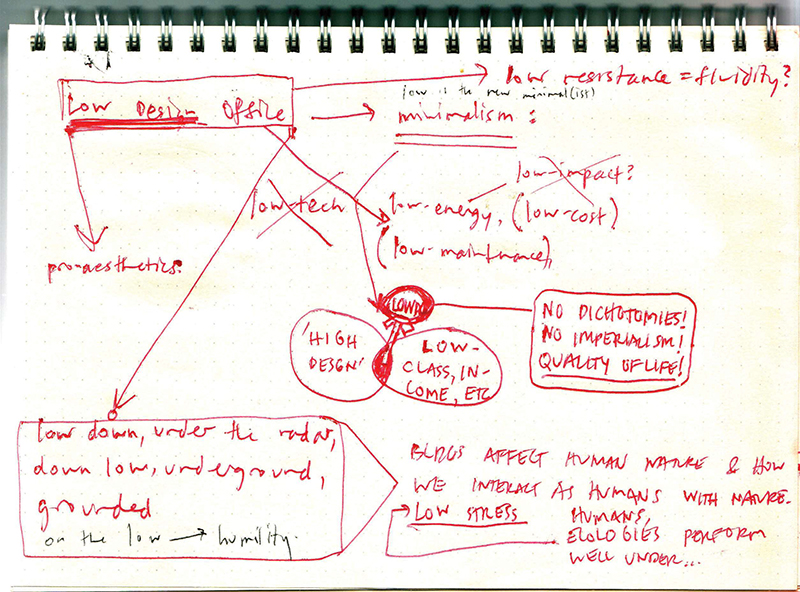 low resistance = fluidity?
low is the new minimal(ist)
Low Design Office
minimalism :
low-impact?
low-tech
low-energy, (low-cost)
(low-maintenance),
pro-aesthetics?
LOWD
'HIGH
DESIGN'
LOW-
CLASS, IN-
COME, ETC
NO DICHOTOMIES!
NO IMPERIALISM!
QUALITY OF LIFE!
low down, under the radar,
down low, underground,
grounded
on the low → humility.
BLDGS AFFECT HUMAN NATURE & HOW
WE INTERACT AS HUMANS WITH NATURE.
LOW STRESS HUMANS,
ECOLOGIES PERFORM
WELL UNDER...